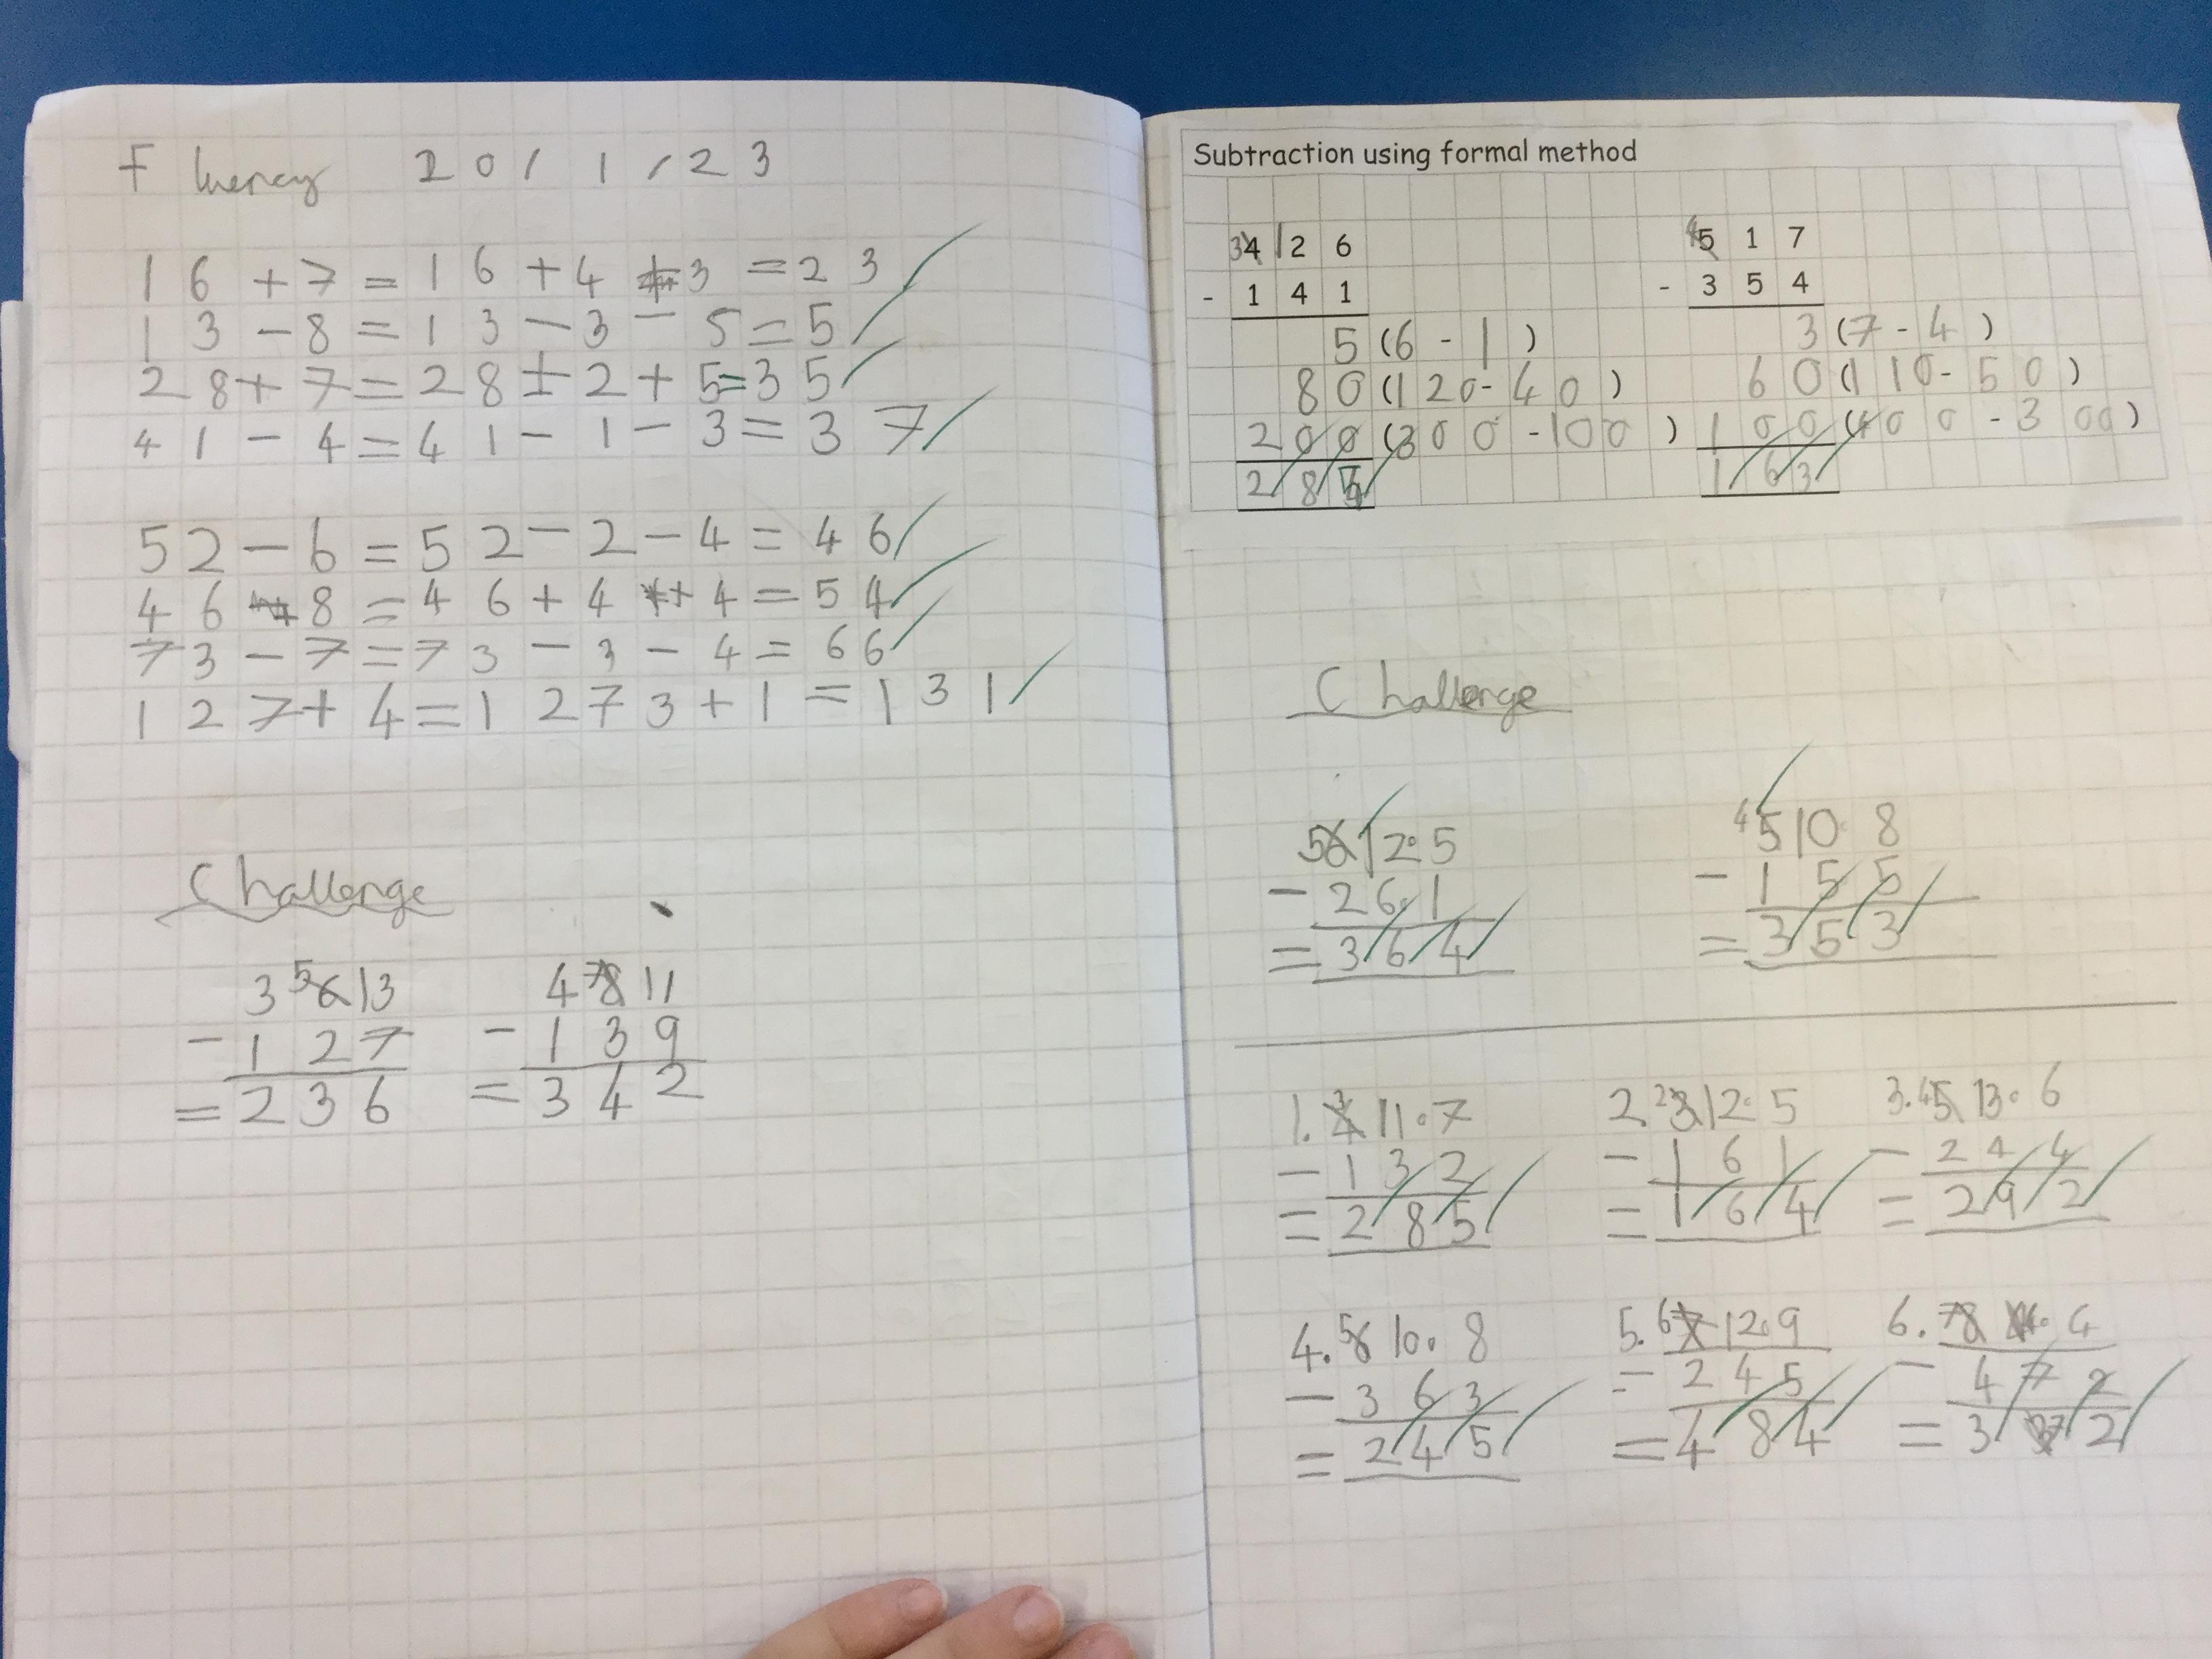 Fluency 20/1/23
16+7=16+4+3=23
13-8=13-3-5=5
28+7=28+2+5=35
41-4=41-1-3=37
52-6=52-2-4=46
46+8=46+4+4=54
73-7=73-3-4=66
127+4=1273+1=131
Challenge
3 5 6 13
- 1 2 7
= 2 3 6
4 7 8 11
- 1 3 9
= 3 4 2
Subtraction using formal method
3 4 12 6
- 1 4 1
5 (6-1)
80 (120-40)
200 (300-100)
2 8 5
4 5 1 7
- 3 5 4
3 (7-4)
60 (110-50)
100 (400-300)
1 6 3
Challenge
5 6 12 5
- 2 6 1
= 3 6 4
4 5 10 8
- 1 5 5
= 3 5 3
1. 3 4 11 7
- 1 3 2
= 2 8 5
2. 2 3 12 5
- 1 6 1
= 1 6 4
3. 4 5 13 6
- 2 4 4
= 2 9 2
4. 5 6 10 8
- 3 6 3
= 2 4 5
5. 6 7 12 9
- 2 4 5
= 4 8 4
6. 7 8 14 4
- 4 7 2
= 3 7 2